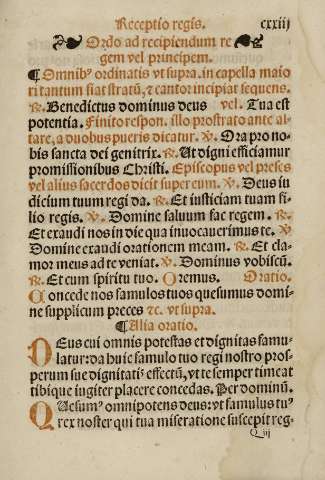 Receptio regis. cxxiij
Ordo ad recipiendum re
gem vel principem.
¶ Omnibꝰ ordinatis vt supra. in capella maio
ri tantum fiat stratū, ⁊ cantor incipiat sequens.
℟. Benedictus dominus deus vel. Tua est
potentia. Finito respon. illo prostrato ante al-
tare, a duobus pueris dicatur. ℣. Ora pro no-
bis sancta dei genitrix. ℟. Ut digni efficiamur
promissionibus Christi. Episcopus vel preses
vel alius sacerdos dicit super eum. ℣. Deus iu
dicium tuum regi da. ℟. Et iusticiam tuam fi-
lio regis. ℣. Domine saluum fac regem. ℟.
Et exaudi nos in die qua inuocauerimus te. ℣.
Domine exaudi orationem meam. ℟. Et cla-
mor meus ad te veniat. ℣. Dominus vobiscū.
℟. Et cum spiritu tuo. Oremus. Oratio.
Concede nos famulos tuos quesumus domi-
ne supplicum preces ⁊c. vt supra.
¶ Alia oratio.
DEus cui omnis potestas et dignitas famu-
latur: da huic famulo tuo regi nostro pros-
perum sue dignitatis effectū, vt te semper timeat
tibique iugiter placere concedas. Per dominū.
QUesumꝰ omnipotens deus: vt famulus tuꝰ
rex noster qui tua miseratione suscepit reg-
Q iij